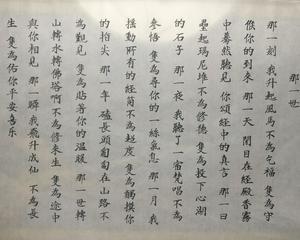 那一世
那一刻 我升起風馬 不為乞福 隻為守
候你的到來 那一天 閉目在經殿香霧
中驀然聽見 你頌經中的真言 那一日
壘起瑪尼堆不為修德 隻為投下心湖
的石子 那一夜 我聽了一宿梵唱不為
參悟 隻為尋你的一絲氣息 那一月 我
搖動所有的經筒不為超度 隻為觸摸你
的指尖 那一年 磕長頭匍匐在山路 不
為覲見 隻為貼著你的溫暖 那一世 轉
山轉水轉佛塔啊不為修來生 隻為途中
與你相見 那一瞬 我飛升成仙 不為長
生 隻為佑你平安喜樂